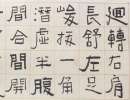 迴轉右肩
長舒左足
峻拔一角
潛虛半腹
間合間開